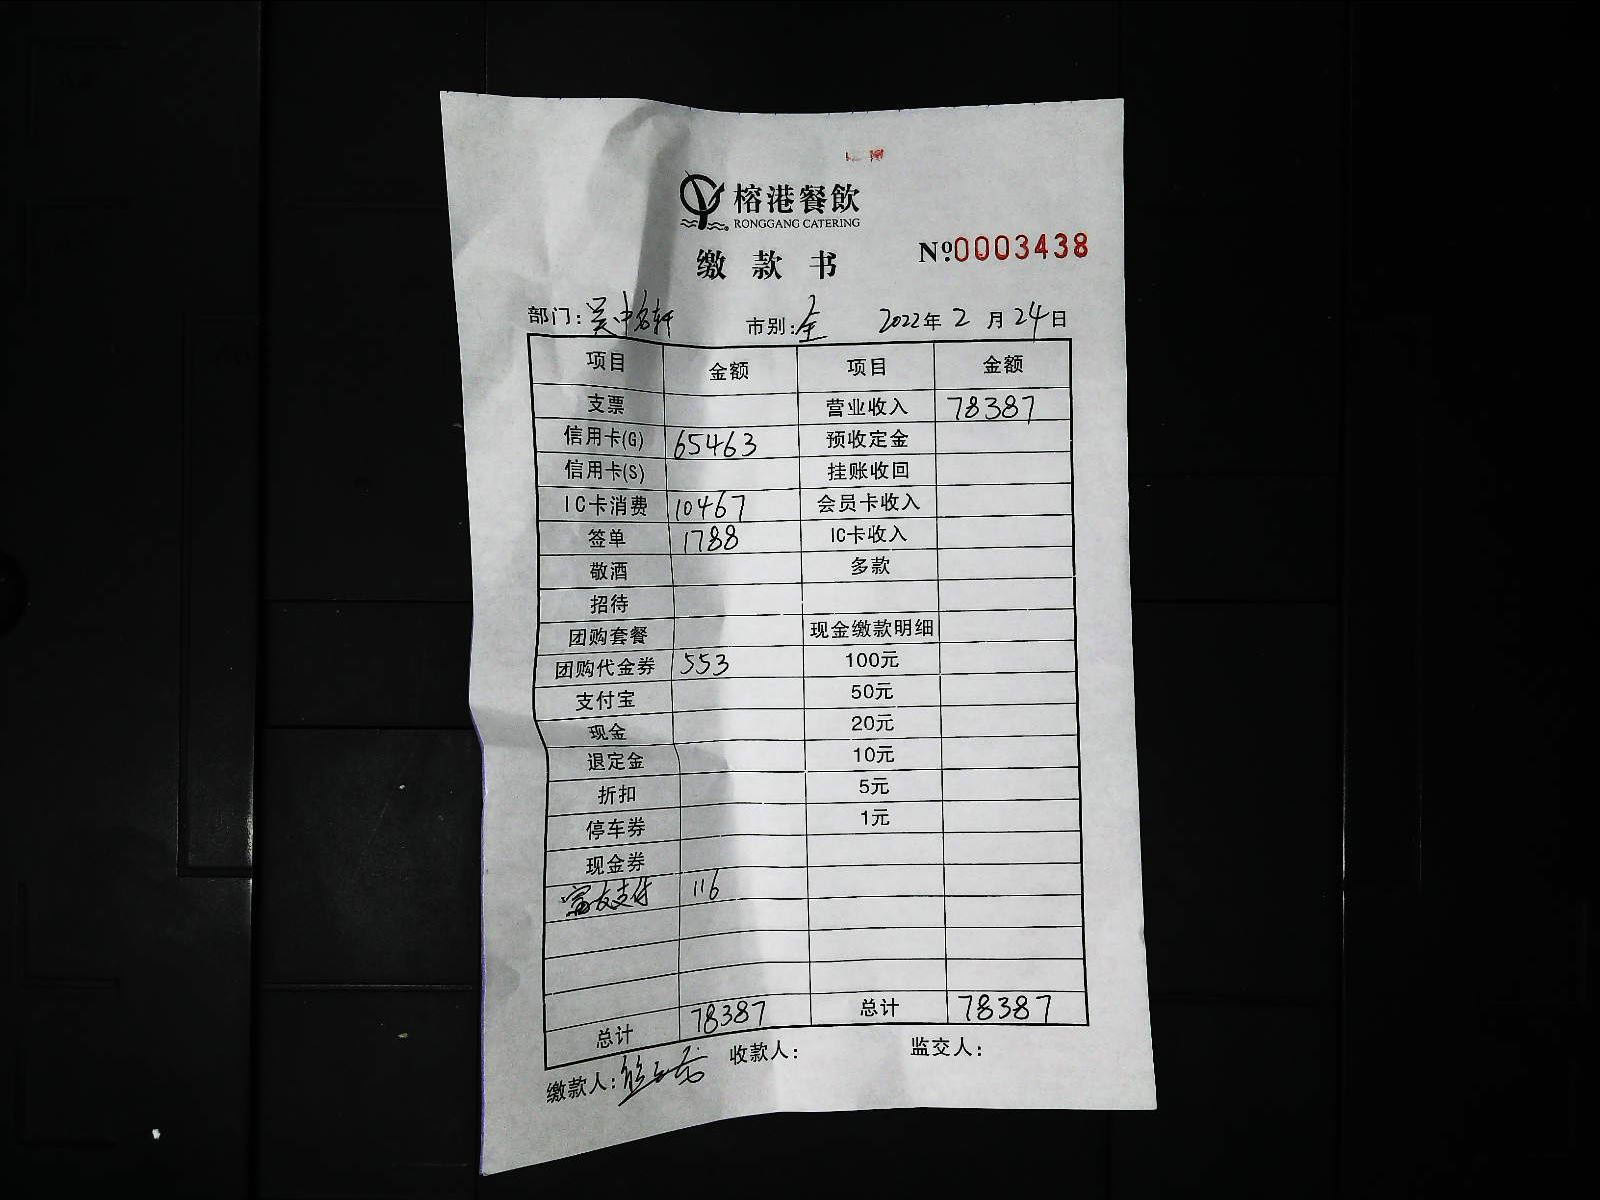 榕港餐飲
RONGGANG CATERING
缴款书 №0003438
部门:吴中名轩 市别:全 2022年2月24日
项目 金额 项目 金额
支票 营业收入 78387
信用卡(G) 65463 预收定金
信用卡(S) 挂账收回
IC卡消费 10467 会员卡收入
签单 1788 IC卡收入
敬酒 多款
招待
团购套餐 现金缴款明细
团购代金券 553 100元
支付宝 50元
现金 20元
退定金 10元
折扣 5元
停车券 1元
现金券
富友支付 116
总计 78387 总计 78387
缴款人: 收款人: 监交人: